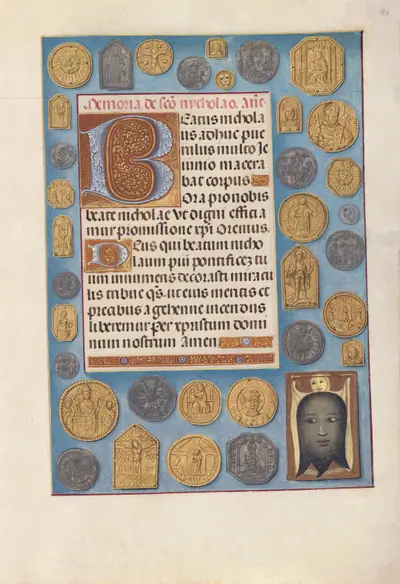 Memoria de sco nycholao. Añe
Eatus nichola
us adhuc pue
rulus multo Ie
iunio macera
bat corpus
Ora pro nobis
beate nicholae Vt digni effitia
mur promissione xpi Oremus.
Deus qui beatum nicho
laum pium pontificez tu
um innumeris decorasti miracu
lis tribue qs. ut eius meritis et
precabus a gehenne incendiis
liberemur per xpristum domi
num nostrum Amen